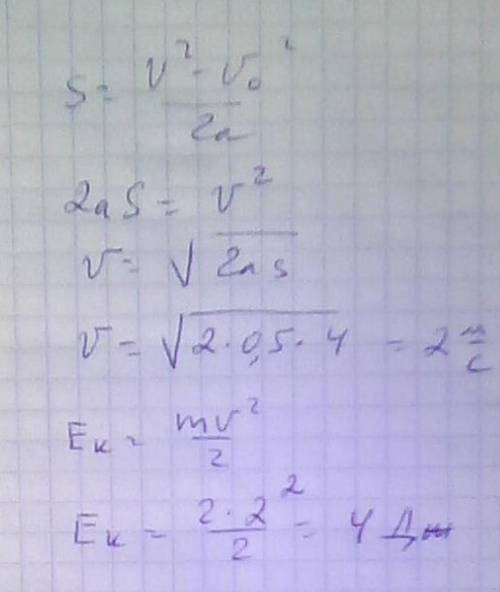 S = (v² - v₀²) / 2a
2aS = v²
v = √(2as)
v = √(2·0,5·4) = 2 м/с
Eк = mv²/2
Eк = 2·2²/2 = 4 Дж